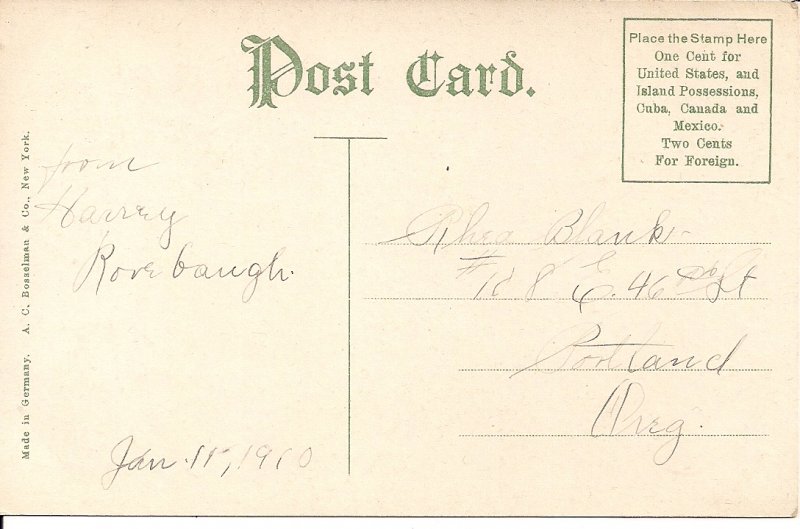 Post Card.
Place the Stamp Here
One Cent for
United States, and
Island Possessions,
Cuba, Canada and
Mexico.
Two Cents
For Foreign.
Made in Germany. A. C. Bosselman & Co., New York.
from
Harvey
Rovebaugh.
Jan. 11, 1910
Rhea Blank
#128 E. 46 St
Portland
Oreg.